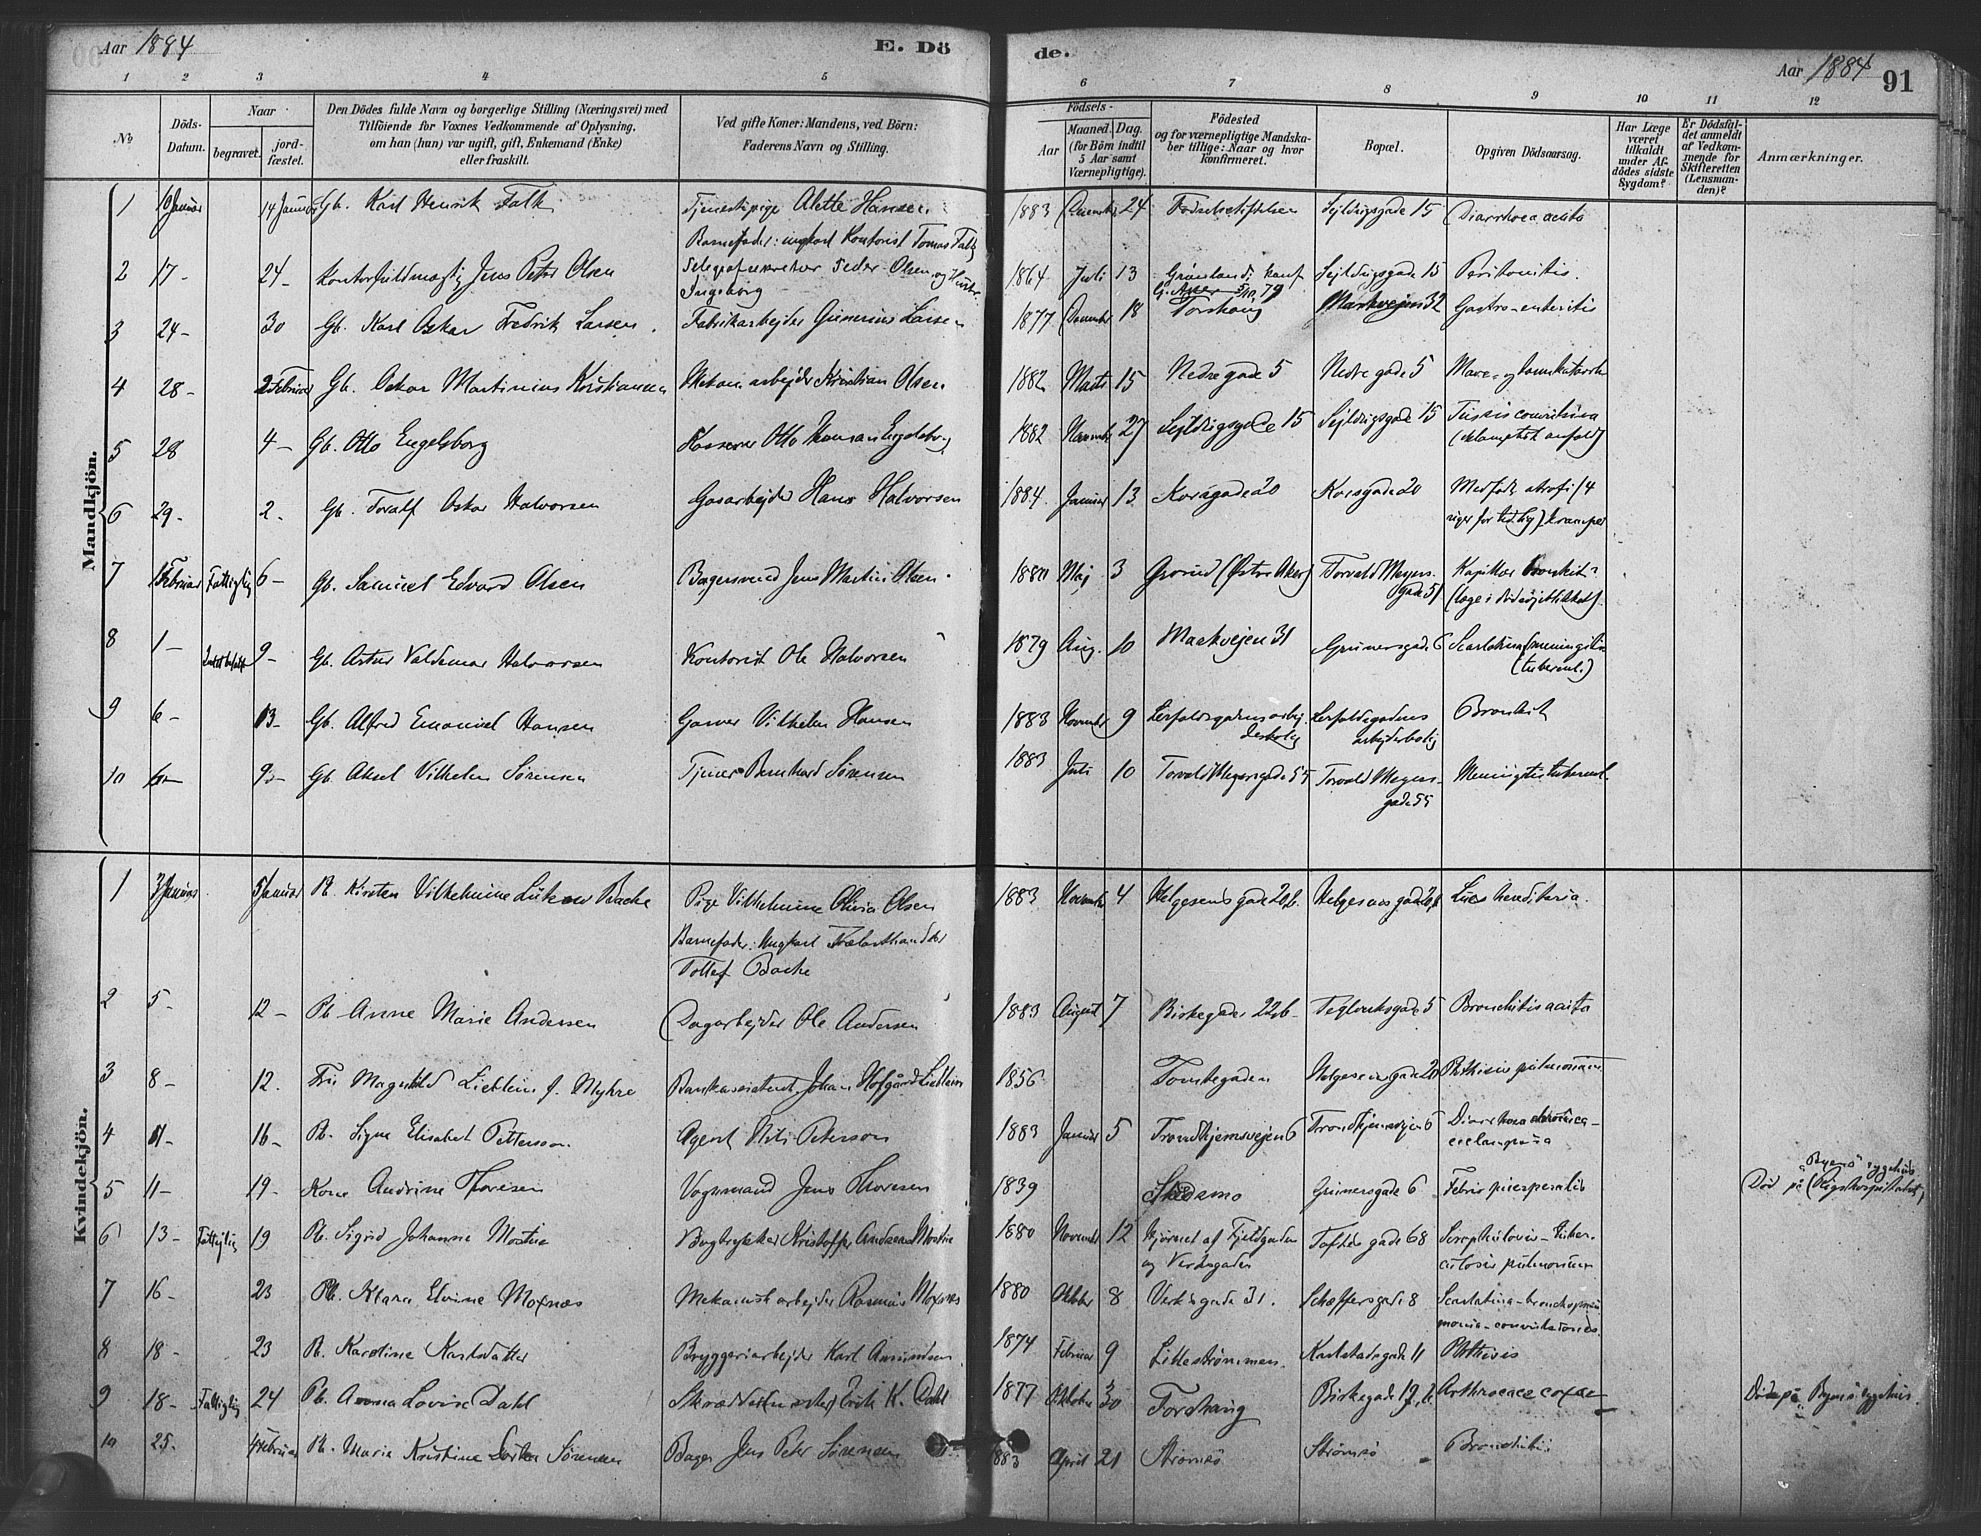 Aar 1884
E. Dö
de.
Aar 1884
91
1 2 3 4 5 6 7 8 9 10 11 12
No.
Döds-Datum.
Naar
begravet.
jord-fæstet.
Den Dödes fulde Navn og borgerlige Stilling (Næringsvei) med
Tilföiende for Voxnes Vedkommende af Oplysning,
om han (hun) var ugift, gift, Enkemand (Enke)
eller fraskilt.
Ved gifte Koner: Mandens, ved Börn:
Faderens Navn og Stilling.
Födsels-
Aar
Maaned. Dag.
(for Börn indtil
5 Aar samt
Værnepligtige).
Födested
og for værnepligtige Mandska-
ber tillige: Naar og hvor
konfirmeret.
Bopæl.
Opgiven Dödsaarsag.
Har Læge
været
tilkaldt
under Af-
dödes sidste
Sygdom?
Er Dödsfal-
det anmeldt
af Vedkom-
mende for
Skifteretten
(Lensman-
den)?
Anmærkninger.
Mandkjön.
1 Januar 14 Januar Gb. Karl Henrik Falk Tjenestepige Alette Hansen 1883 24 Fødselsstiftelsen Sejldugsgade 15 Diarrhoea acuta
Barnefader: ungkarl Kontorist Tomas Falk
2 17- 24- Kontorfuldmægtig Jens Petter Olsen Peder Olsen og Hustru 1864 Juli 13 Grønland Sejldugsgade 15 Peritonitis.
Ingeborg
3 24- 30 Gb. Karl Oskar Fredrik Larsen. Fabrikarbejder Larsen 1877 December 18 Torshaug Markvejen 32 Gastro-enteritis
4 28- 2 Februar Gb. Oskar Martinius Kristiansen Mekan. arbejder Kristian Olsen 1882 Marts 15 Nedregade 5 Nedregade 5 Mave- og
5 28 4- Gb. Otto Engelsborg Otto Engelsborg 1882 November 27 Sejldugsgade 15 Sejldugsgade 15 Tussis convulsiva
6 29- 2- Gb. Toralf Oskar Halvorsen Gasarbejder Hans Halvorsen 1884. Januar 13 Korsgade 20 Korsgade 20 Medfødt atrofi (4
uger for tidlig), kramper
7 1 Februar Fattiglig 6- Gb. Samuel Edvard Olsen Bagersvend Jens Martin Olsen 1880 Maj 3 Grorud (Østre Aker) Torvald Meyers Kapillær bronkit
gade 51
8 1- 9- Gb. Artur Valdemar Halvorsen Kontorist Ole Halvorsen 1879 Aug. 10 Markvejen 31 Grünersgade 6 Scarlatina (meningitis
(tubercul.)
9 6- 13- Gb. Alfred Emanuel Hansen Garver Vilhelm Hansen 1883 November 9 Bronkit
10 9- Gb. Aksel Vilhelm Sørensen Tjener Bernhard Sørensen 1883 Juli 10 Torvald Meyersgade 55 Torvald Meyers- Meningitis tubercul.
gade 55
Kvindekjön.
1 3 Januar 5 Januar Pb. Kirsten Vilhelmine Bache Pige Vilhelmine Olivia Olsen 1883 November 4 Helgesensgade Helgesensgade Lues hereditaria.
Barnefader: Ungkarl Trælasthandler
Tollef Bache
2 5- 12- Pb. Anne Marie Andersen Dagarbejder Ole Andersen 1883 August 7 Birkegaden 22b- Teglverksgade 5 Bronchitis acuta
3 8- 12. Fru Magnhild Lieblein f. Myhre Bankassistent Johan Hofgård Lieblein 1856 Tomtegaden Helgesensgade 20 Phthisis pulmonum
4 11- 16- Pb. Signe Elisabet Pettersson Agent Nils Peterson 1883 Januar 5 Trondhjemsvejen 6 Trondhjemsvejen 6 Diarrhoea chronica-
eclampsia
5 11- 19- Kone Andrine Thoresen Vognmand Jens Thoresen 1839 Skedsmo Grünersgade 6 Febris puerperalis Død på "Byens" sygehus (Rigshospitalet)
6 13- Fattiglig 19 Pb. Sigrid Johanne Mostue Bogtrykker Kristoffer Andersen Mostue 1880 November 12 Hjørnet af Fjeldgaden Toftesgade 68
og Verksgaden pulmonum
7 16- 23 Pb. Klara Elvine Moxnæs Mekanisk arbejder Rasmus Moxnæs 1880 Oktober 8 Verksgade 31. Schæffersgade 8 Scarlatina-bronchopneu
monia-convulsiones.
8 18- 23 Pb. Karoline Karlsdatter Bryggeriarbejder Karl Amundsen 1874 Februar 9 Lillestrømmen. Karlstadsgade 11 Phthisis
9 18- Fattiglig 24 Pb. Anna Lovise Dahl Skræddermester Erik K. Dahl 1877 Oktober 30 Torshaug Birkegade 19 Arthrocace coxae Døde på Byens sygehus.
10 25- 4 Februar Pb. Marie Kristine Sørensen Bager Jens Peter Sørensen 1883 April 21 Strømsø Strømsø Bronchitis